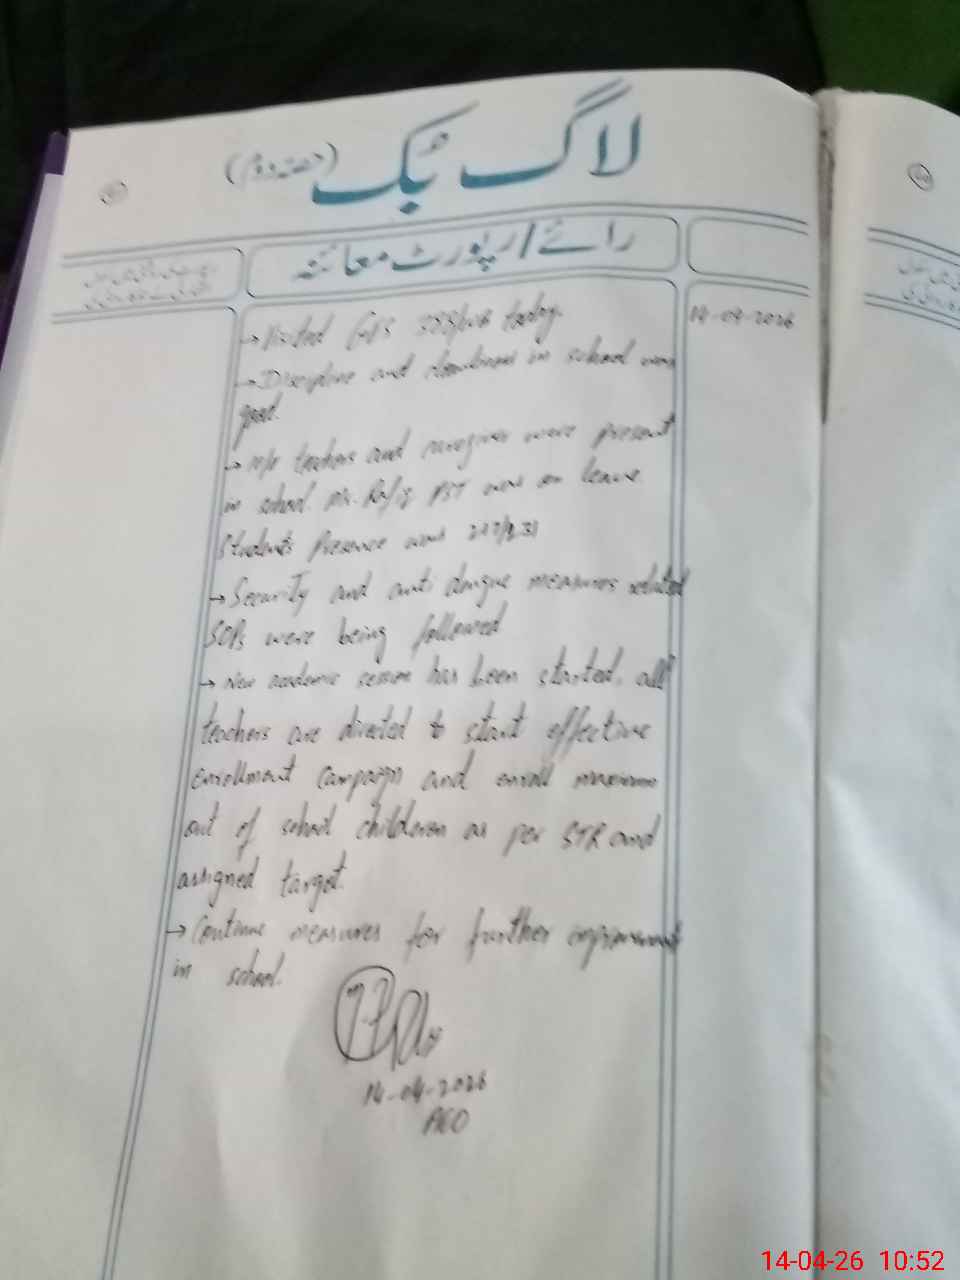 لاگ بُک (حصہ دوم)
رائے/رپورٹ معائنہ
14-04-2026
→ Visited today.
→ Discipline and cleanliness in school was
good.
→ teachers and caregiver were present
in school. Mr. PST was on leave.
Students Presence was
→ Security and anti dengue measures related
SOPs were being followed
→ New academic session has been started, all
teachers are directed to start effective
enrollment campaign and enroll maximum
out of school childeren as per STR and
assigned target.
→ Continue measures for further improvement
in school.
14-04-2026
AEO
14-04-26 10:52